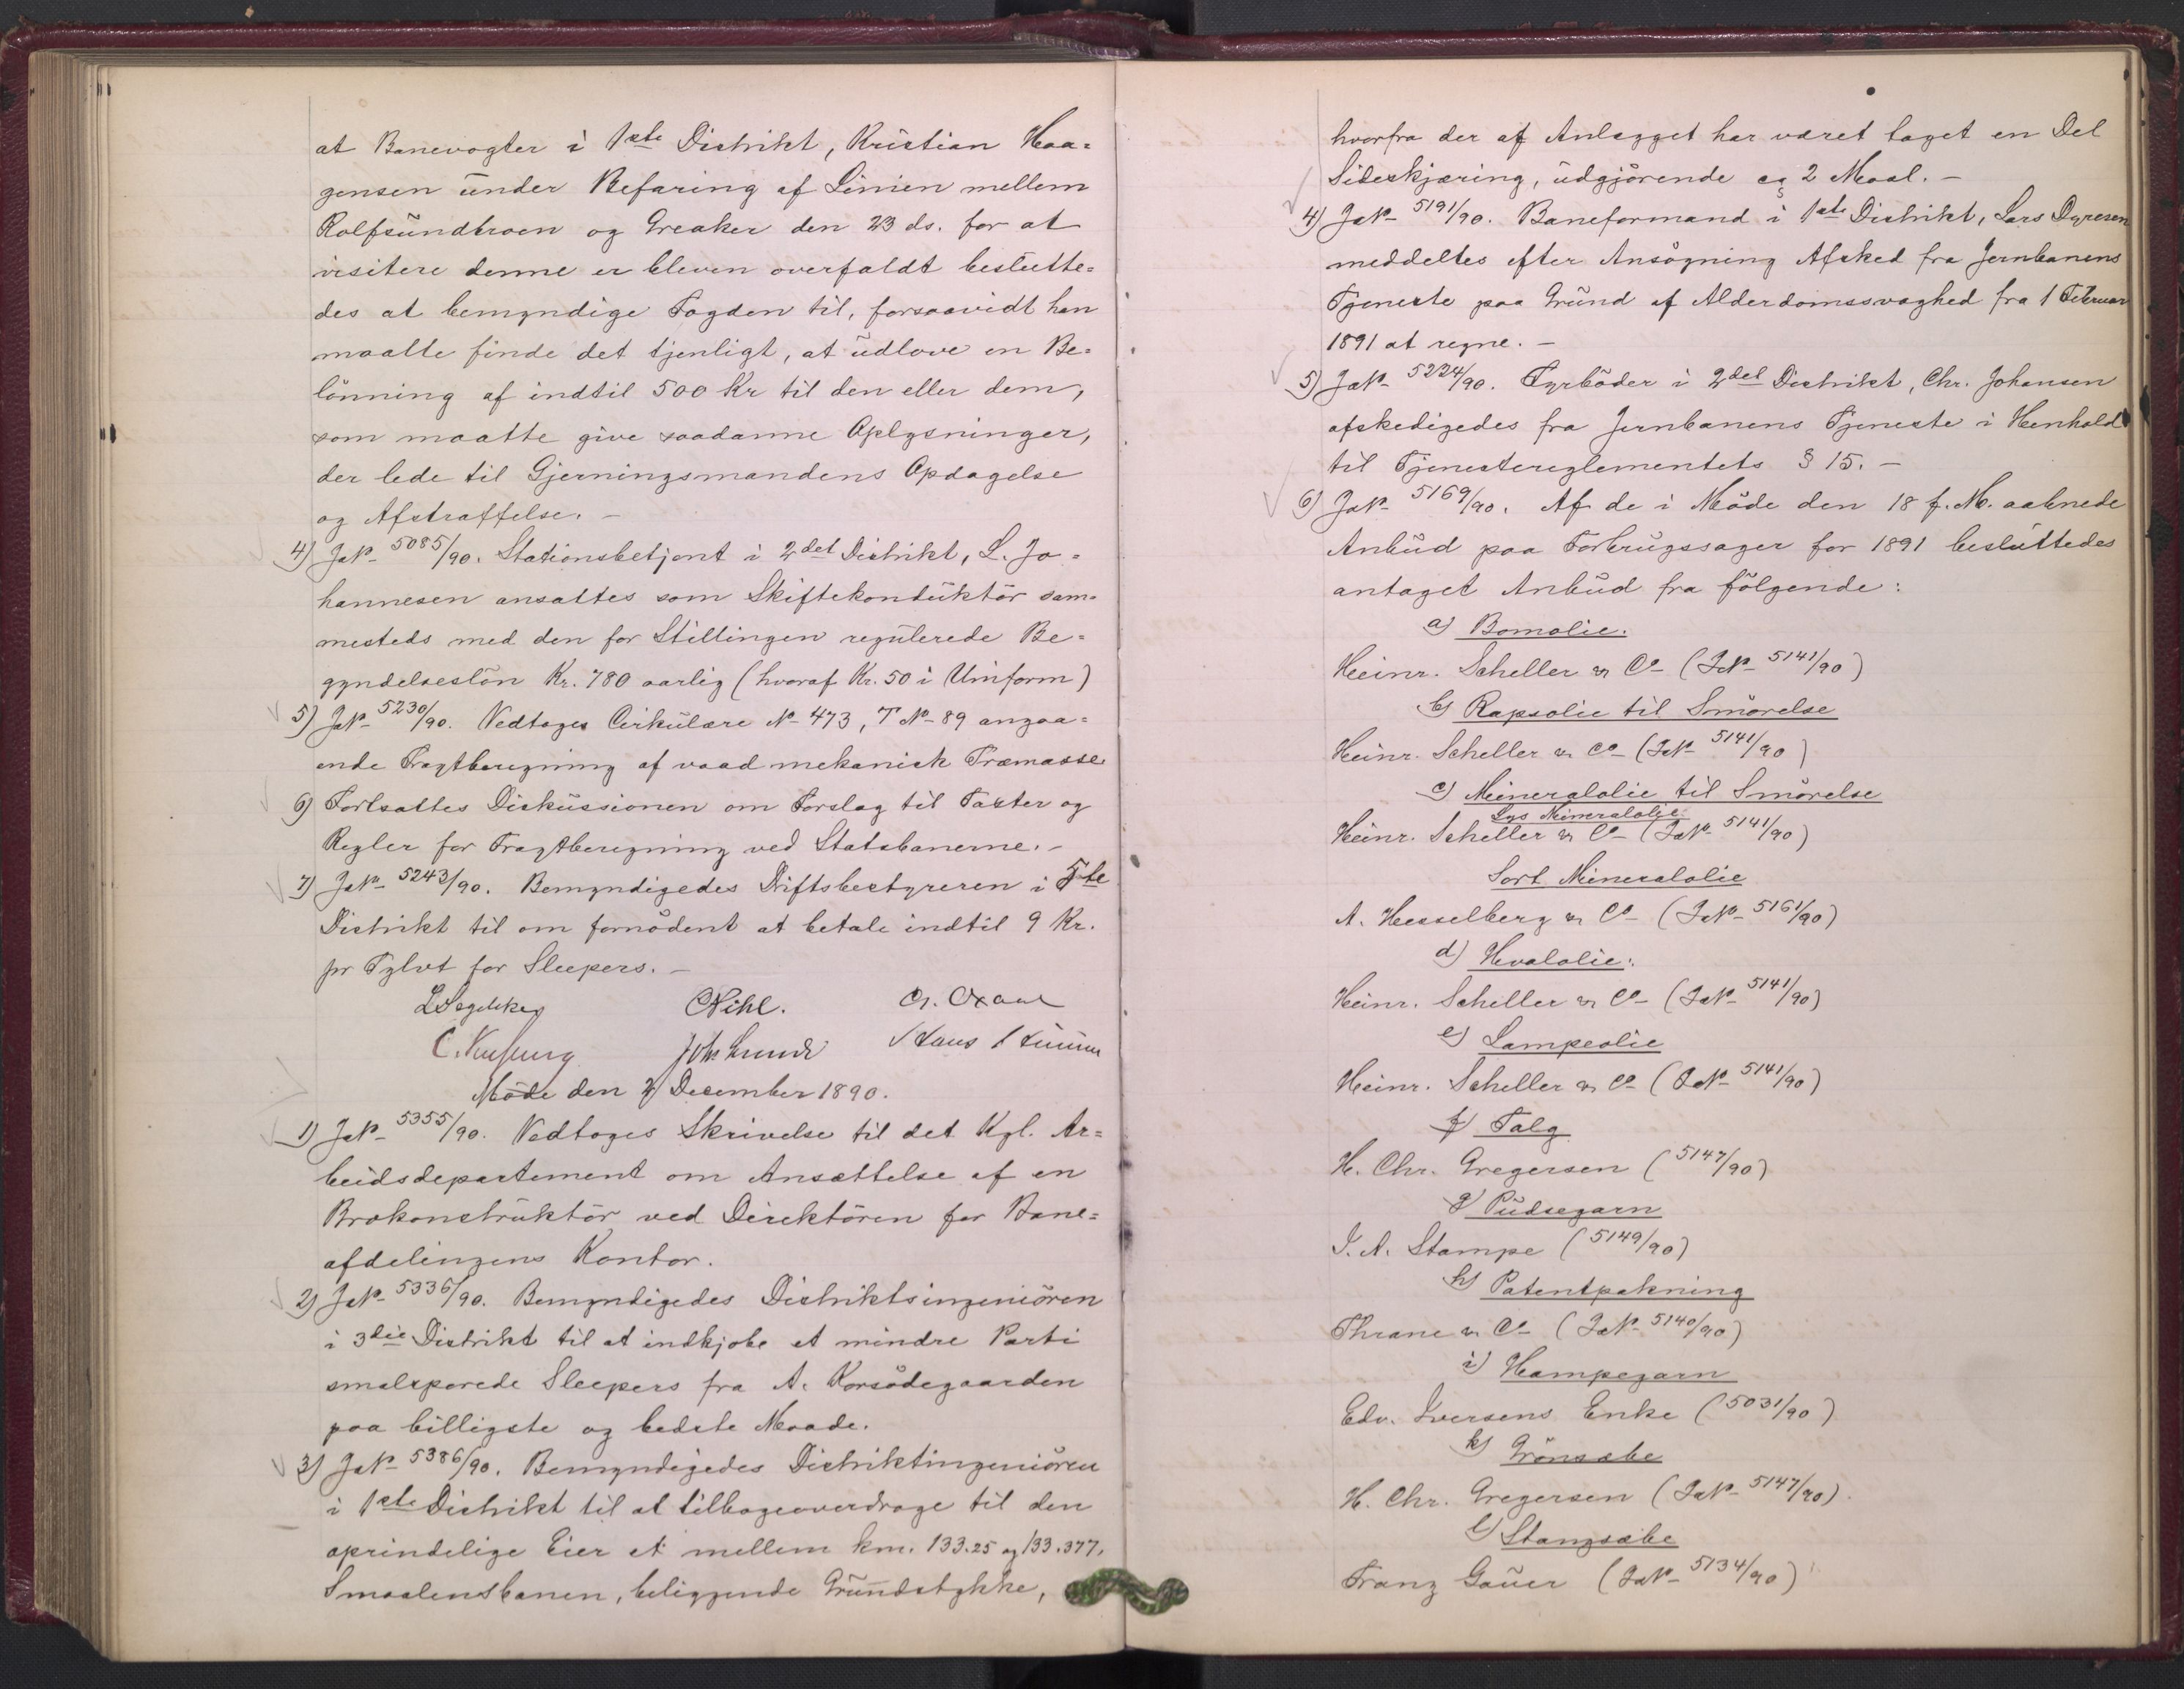 at Banevogter i 1ste Distrikt, Kristian Haa=
gensen under Befaring af Linien mellem
Rolfsundbroen og Greaker den 23 ds. for at
visitere denne er bleven overfaldt beslutte=
des at bemyndige Fogden til, forsaavidt han
maatte finde det tjenligt, at udlove en Be=
lönning af indtil 500 Kr til den eller dem,
som maatte give saadanne Oplysninger,
der lede til Gjerningsmandens Opdagelse
og Afstraffelse. -
4) JNo 5085/90. Stationsbetjent i 2det Distrikt, L. Jo=
hannesen ansattes som Skiftekonduktör sam=
mesteds med den for Stillingen regulerede Be=
gyndelseslön Kr. 780 aarlig (hvoraf Kr. 50 i Uniform)
5) JNo 5230/90. Vedtoges Cirkulære No 473, T No 89 angaa=
ende Fragtberegning af vaad mekanisk Træmasse
6) Fortsattes Diskussionen om Forslag til Taxter og
Regler for Fragtberegning ved Statsbanerne. -
7) JNo 5243/90. Bemyndigedes Driftsbestyreren i 5te
Distrikt til om fornödent at betale indtil 9 Kr.
pr Tylvt for Sleepers. -
C Pihl.
Möde den 2/ December 1890.
1) JNo 5355/90. Vedtoges Skrivelse til det Kgl. Ar=
beidsdepartement om Ansættelse af en
Brokonstruktör ved Direktören for Bane=
afdelingens Kontor.
2) JNo 5336/90. Bemyndigedes Distriktsingeniören
i 3die Distrikt til at indkjöbe et mindre Parti
smalsporede Sleepers fra A. Korsödegaarden
paa billigste og bedste Maade.
3) JNo 5386/90. Bemyndigedes Distriktingeniören
i 1ste Distrikt til at tilbageoverdrage til den
oprindelige Eier et mellem km. 133.25 og 133.377,
Smaalensbanen, beliggende Grundstykke,
hvorfra der af Anlægget har været taget en Del
Sideskjæring, udgjörende ca 2 Maal. -
4) JNo 5191/90. Baneformand i 1ste Distrikt, Lars Dyresen
meddeltes efter Ansögning Afsked fra Jernbanens
Tjeneste paa Grund af Alderdomssvaghed fra 1 Februar
1891 at regne. -
5) JNo 5224/90. Fyrböder i 2det Distrikt, Chr. Johansen
afskedigedes fra Jernbanens Tjeneste i Henhold
til Tjenestereglementets § 15. -
6) JNo 5169/90. Af de i Möde den 18 f. M. aabnede
Anbud paa Forbrugssager for 1891 besluttedes
antaget Anbud fra fölgende:
a) Bomolie.
Heinr. Scheller & Co (JNo 5141/90)
b) Rapsolie til Smörelse
Heinr. Scheller & Co (JNo 5141/90)
c) Mineralolie til Smörelse
Lys Mineralolie
Heinr. Scheller & Co (JNo 5141/90)
Sort Mineralolie
A. Hesselberg & Co (JNo 5161/90)
d) Hvalolie.
Heinr. Scheller & Co (JNo 5141/90)
e) Lampeolie
Heinr. Scheller & Co (JNo 5141/90)
f) Talg
H. Chr. Gregersen (5147/90)
g) Pudsegarn
J. A. Stampe (5149/90)
h) Patentpakning
Thrane & Co (JNo 5140/90)
i) Hampegarn
Edv. Iversens Enke (5031/90)
k) Grönsæbe
H. Chr. Gregersen (JNo 5147/90).
l) Stangsæbe
Franz Gauer (JNo 5134/90)